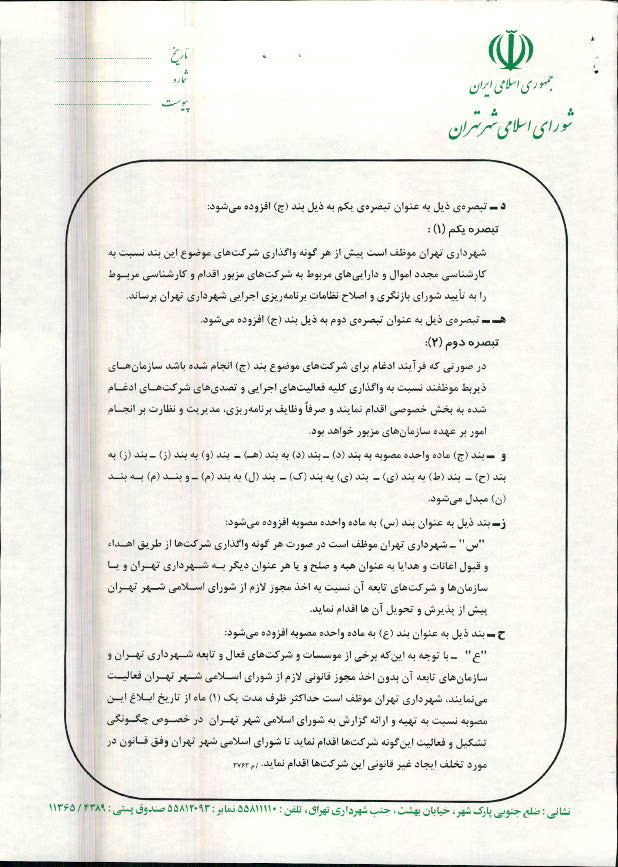 جمهوری اسلامی ایران
شورای اسلامی شهر تهران
تاریخ
شماره
پیوست
د ـ تبصره‌ی ذیل به عنوان تبصره‌ی یکم به ذیل بند (ج) افزوده می‌شود:
تبصره یکم (۱) :
شهرداری تهران موظف است پیش از هر گونه واگذاری شرکت‌های موضوع این بند نسبت به
کارشناسی مجدد اموال و دارایی‌های مربوط به شرکت‌های مزبور اقدام و کارشناسی مربوط
را به تأیید شورای بازنگری و اصلاح نظامات برنامه‌ریزی اجرایی شهرداری تهران برساند.
هـ ـ تبصره‌ی ذیل به عنوان تبصره‌ی دوم به ذیل بند (ج) افزوده می‌شود.
تبصره دوم (۲):
در صورتی که فرآیند ادغام برای شرکت‌های موضوع بند (ج) انجام شده باشد سازمان‌های
ذیربط موظفند نسبت به واگذاری کلیه فعالیت‌های اجرایی و تصدی‌های شرکت‌های ادغام
شده به بخش خصوصی اقدام نمایند و صرفاً وظایف برنامه‌ریزی، مدیریت و نظارت بر انجام
امور بر عهده سازمان‌های مزبور خواهد بود.
و ـ بند (ج) ماده واحده مصوبه به بند (د) ـ بند (د) به بند (هـ) ـ بند (و) به بند (ز) ـ بند (ز) به
بند (ح) ـ بند (ط) به بند (ی) ـ بند (ی) به بند (ک) ـ بند (ل) به بند (م) ـ و بند (م) به بند
(ن) مبدل می‌شود.
ز ـ بند ذیل به عنوان بند (س) به ماده واحده مصوبه افزوده می‌شود:
"س" ـ شهرداری تهران موظف است در صورت هر گونه واگذاری شرکت‌ها از طریق اهداء
و قبول اعانات و هدایا به عنوان هبه و صلح و یا هر عنوان دیگر به شهرداری تهران و یا
سازمان‌ها و شرکت‌های تابعه آن نسبت به اخذ مجوز لازم از شورای اسلامی شهر تهران
پیش از پذیرش و تحویل آن ها اقدام نماید.
ح ـ بند ذیل به عنوان بند (ع) به ماده واحده مصوبه افزوده می‌شود:
"ع" ـ با توجه به این‌که برخی از موسسات و شرکت‌های فعال و تابعه شهرداری تهران و
سازمان‌های تابعه آن بدون اخذ مجوز قانونی لازم از شورای اسلامی شهر تهران فعالیت
می‌نمایند، شهرداری تهران موظف است حداکثر ظرف مدت یک (۱) ماه از تاریخ ابلاغ این
مصوبه نسبت به تهیه و ارائه گزارش به شورای اسلامی شهر تهران در خصوص چگونگی
تشکیل و فعالیت این‌گونه شرکت‌ها اقدام نماید تا شورای اسلامی شهر تهران وفق قانون در
مورد تخلف ایجاد غیر قانونی این شرکت‌ها اقدام نماید. /م ۲۷۶۲
نشانی : ضلع جنوبی پارک شهر، خیابان بهشت، جنب شهرداری تهران، تلفن : ۵۵۸۱۱۱۱۰ نمابر : ۵۵۸۱۲۰۹۳ صندوق پستی : ۴۳۸۹ / ۱۱۳۶۵